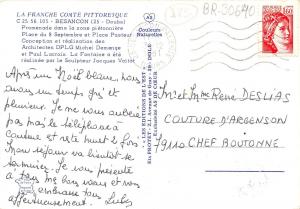 LA FRANCHE COMTÉ PITTORESQUE
C 25.56.105 - BESANÇON (25 - Doubs)
Promenade dans la zône piétonnière
Place du 8 Septembre et Place Pasteur
Conception et réalisation des
Architectes DPLG Michel Demenge
et Paul Lacroix. La Fontaine a été
réalisée par le Sculpteur Jacques Voitot
Couleurs
Naturelles
BR-30640
LES EDITIONS DE L'EST
Après un Noël blanc, nous
avons un temps gris et
pluvieux. Je ne vous oublie
pas mais le téléphone à
coûture et reste muet 5 fois
Mon séjour va bientôt se
terminer. Je vous présente
à tous mes bons vœux et vous
embrasse tous
affectueusement.
Mr et Mme René DESLIAS
COUTURE D'ARGENSON
79110 CHEF BOUTONNE